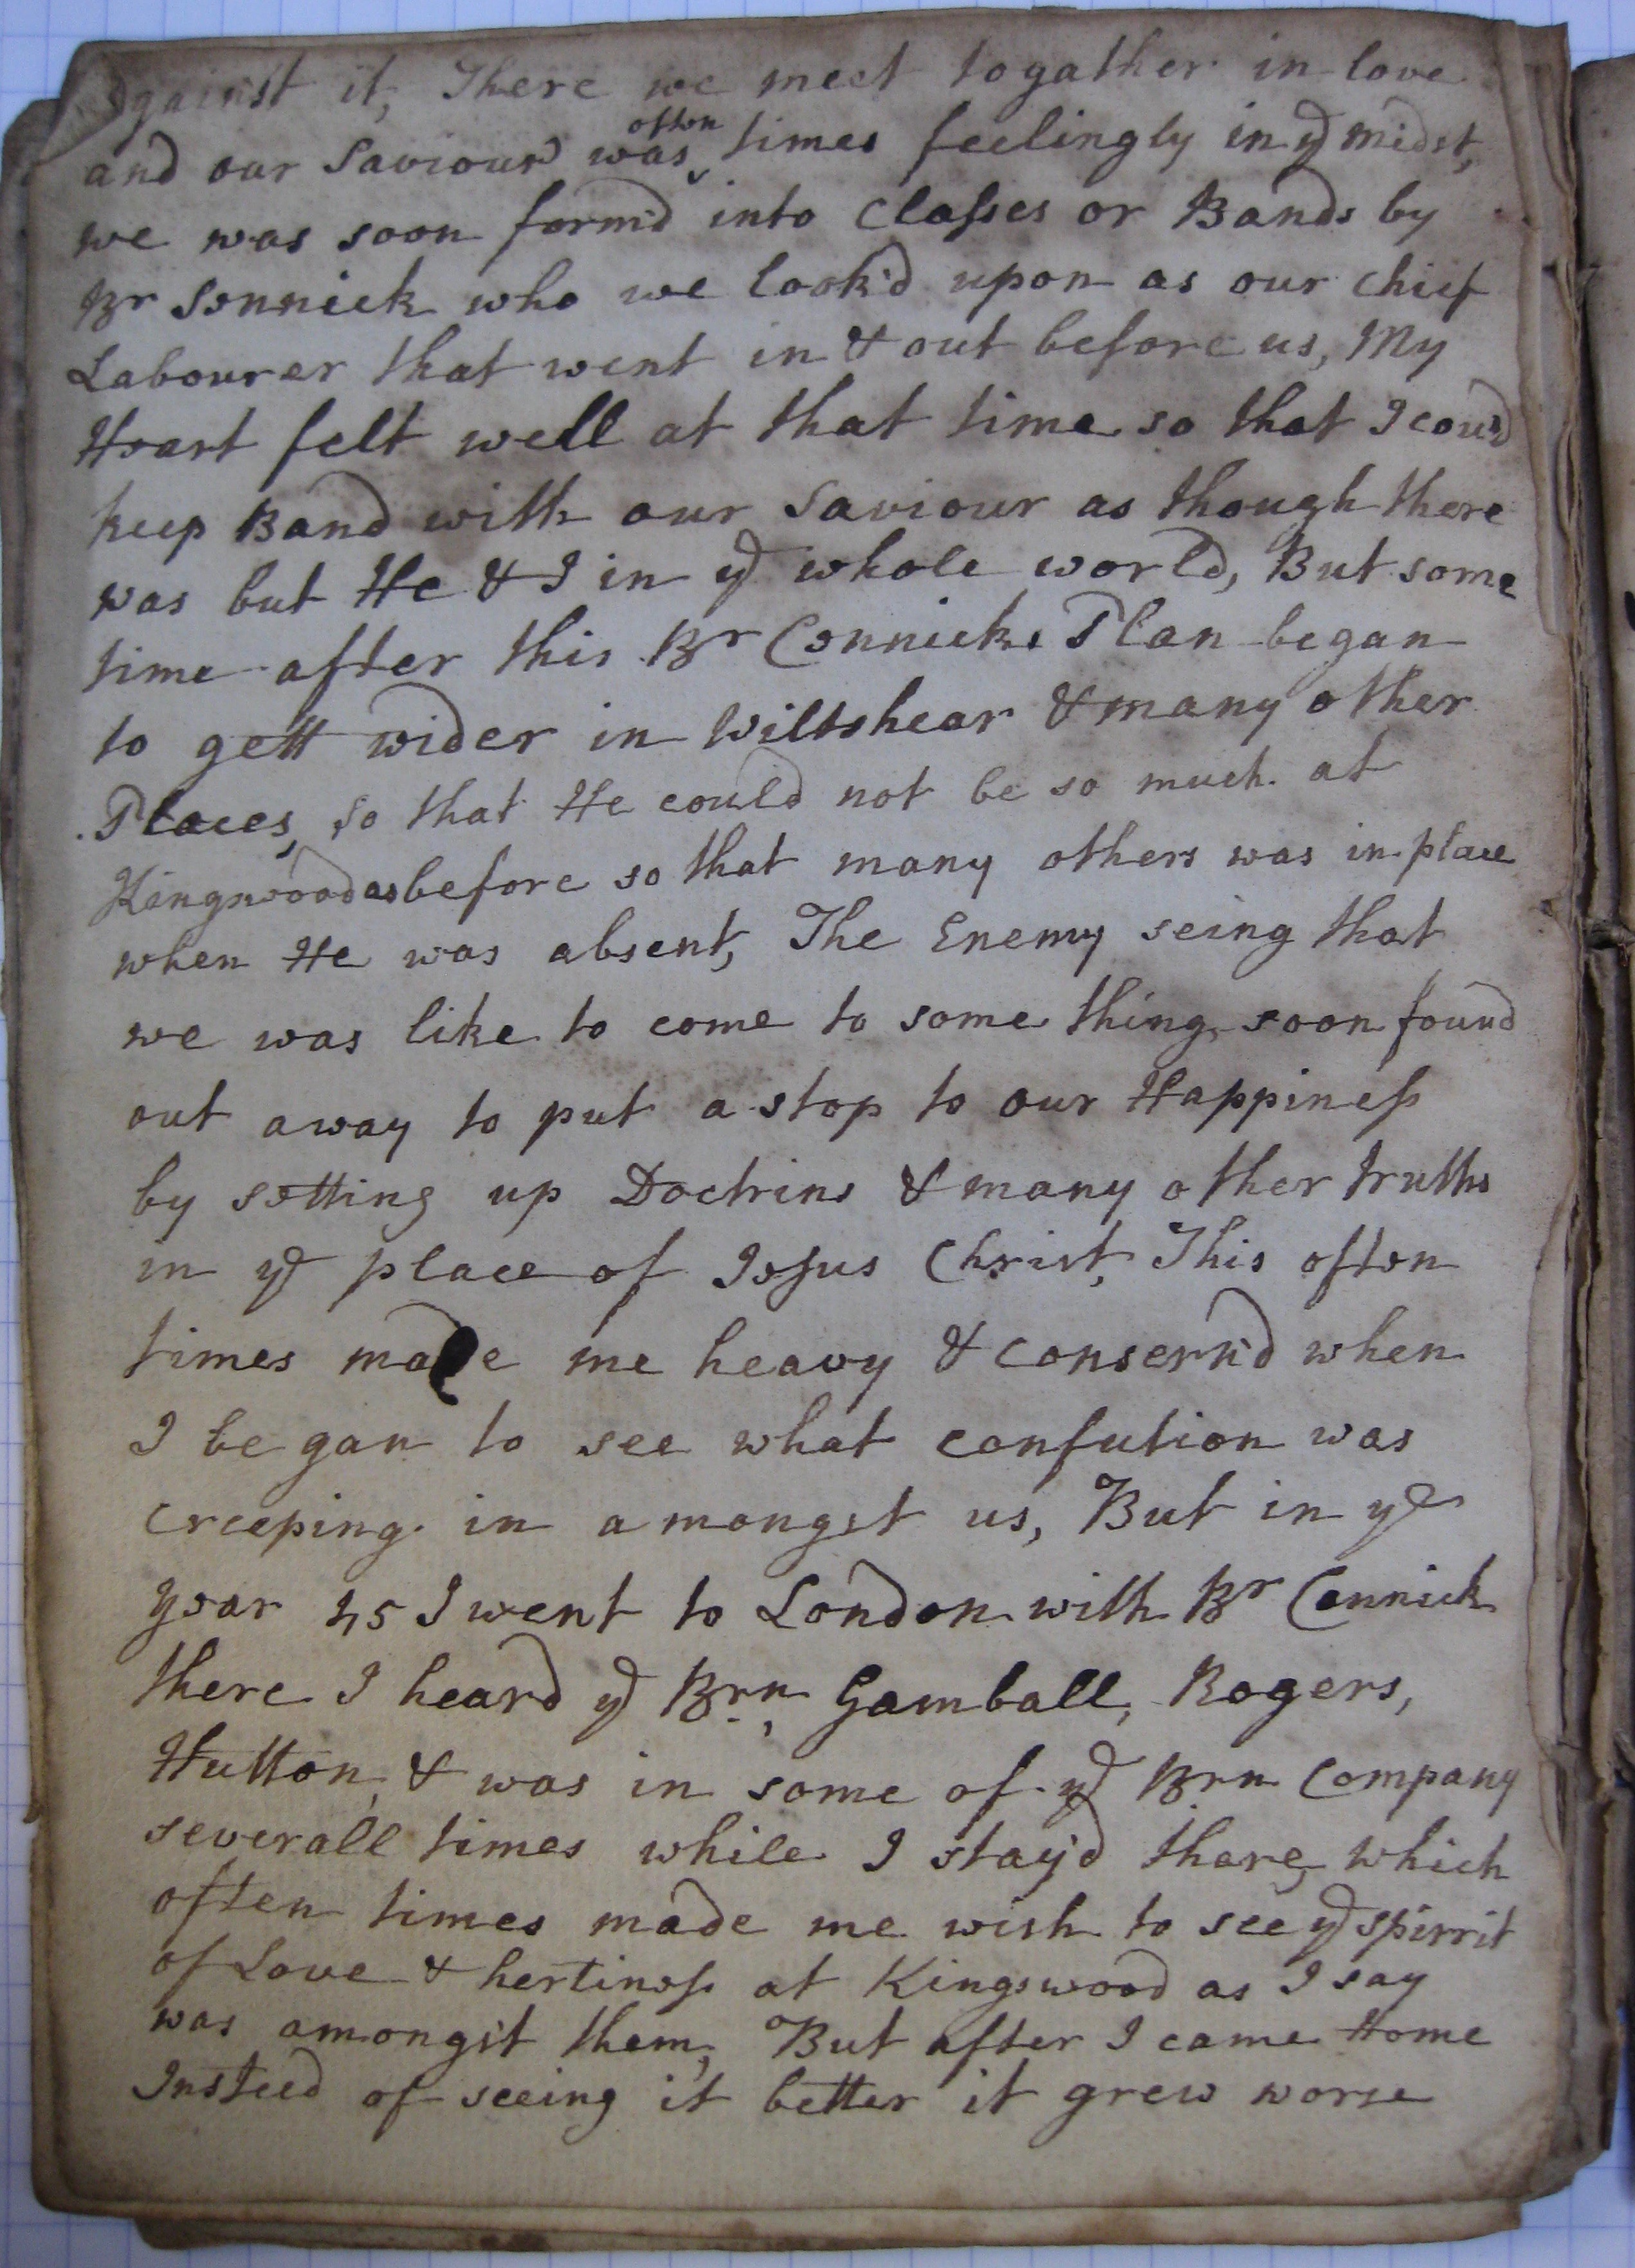 against it, There we meet togather in love
and our Saviour was often times feelingly in ye midst,
we was soon form'd into Classes or Bands by
Br Sennick who we look'd upon as our chief
Labourer that went in & out before us, My
Heart felt well at that time so that I could
keep Band with our Saviour as though there
was but He & I in ye whole world, But some
time after this Br Cennicks Plan began
to gett wider in Wiltshear & many other
Places, so that He could not be so much at
Kingswood as before so that many others was in place
when He was absent, The Enemy seing that
we was like to come to some thing soon found
out away to put a stop to our Happiness
by setting up Doctrins & many other truths
in ye place of Jesus Christ, This often
times made me heavy & consern'd when
I be gan to see what confution was
creeping in amongst us, But in ye
year 45 I went to London with Br Cennick
there I heard ye Brn Gamball, Rogers,
Hutton, & was in some of ye Brn Company
severall times while I stay'd thare, which
often times made me wish to see ye spirrit
of Love & hertiness at Kingswood as I say
was amongst them, But after I came Home
Insteed of seeing it better it grew worse